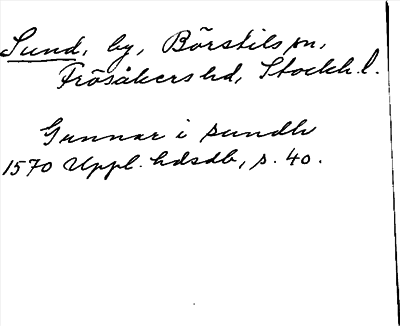 Sund, by, Börstils sn,
Frösåkers hd, Stockh. l.
Gunnar i sundh
1570 Uppl. hdsdb, s. 40.